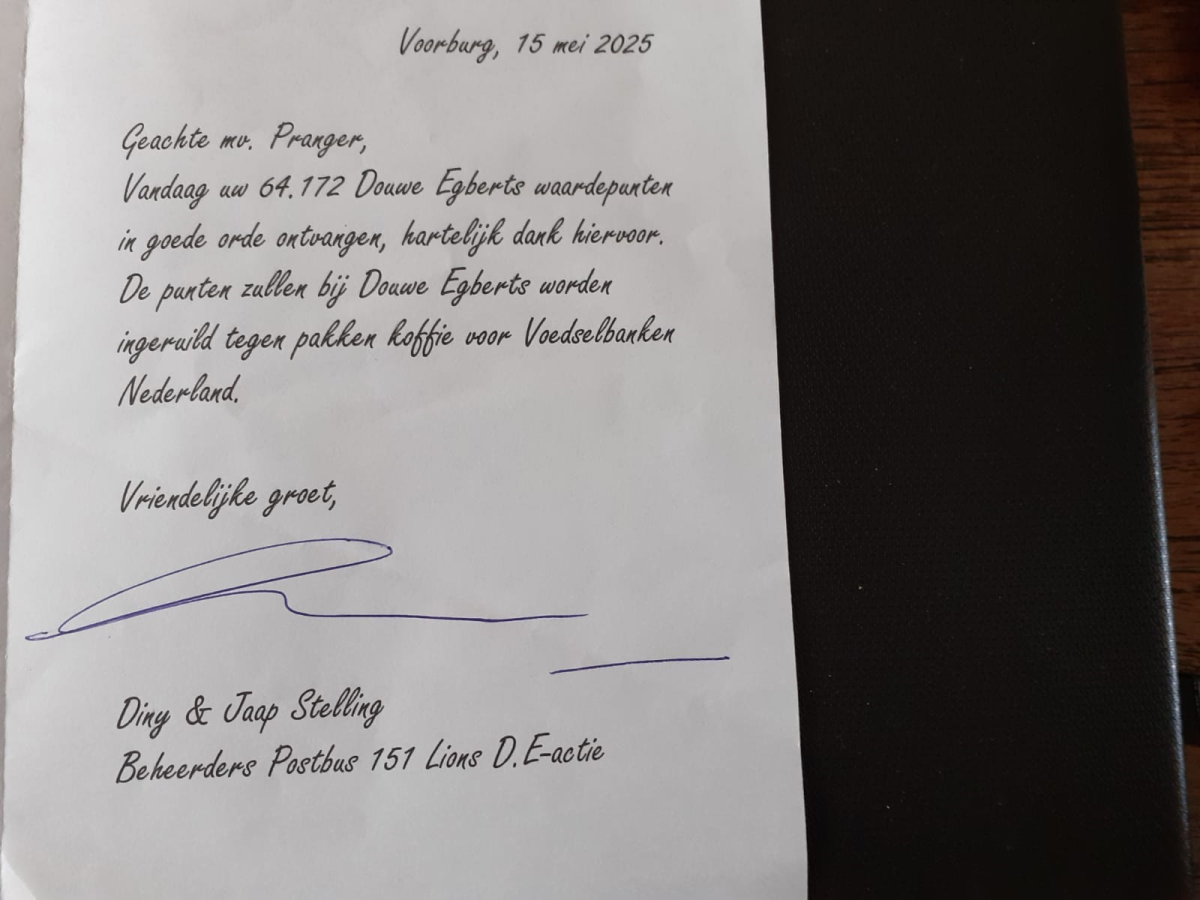 Voorburg, 15 mei 2025
Geachte mv. Pranger,
Vandaag uw 64.172 Douwe Egberts waardepunten
in goede orde ontvangen, hartelijk dank hiervoor.
De punten zullen bij Douwe Egberts worden
ingeruild tegen pakken koffie voor Voedselbanken
Nederland.
Vriendelijke groet,
Diny & Jaap Stelling
Beheerders Postbus 151 Lions D.E-actie